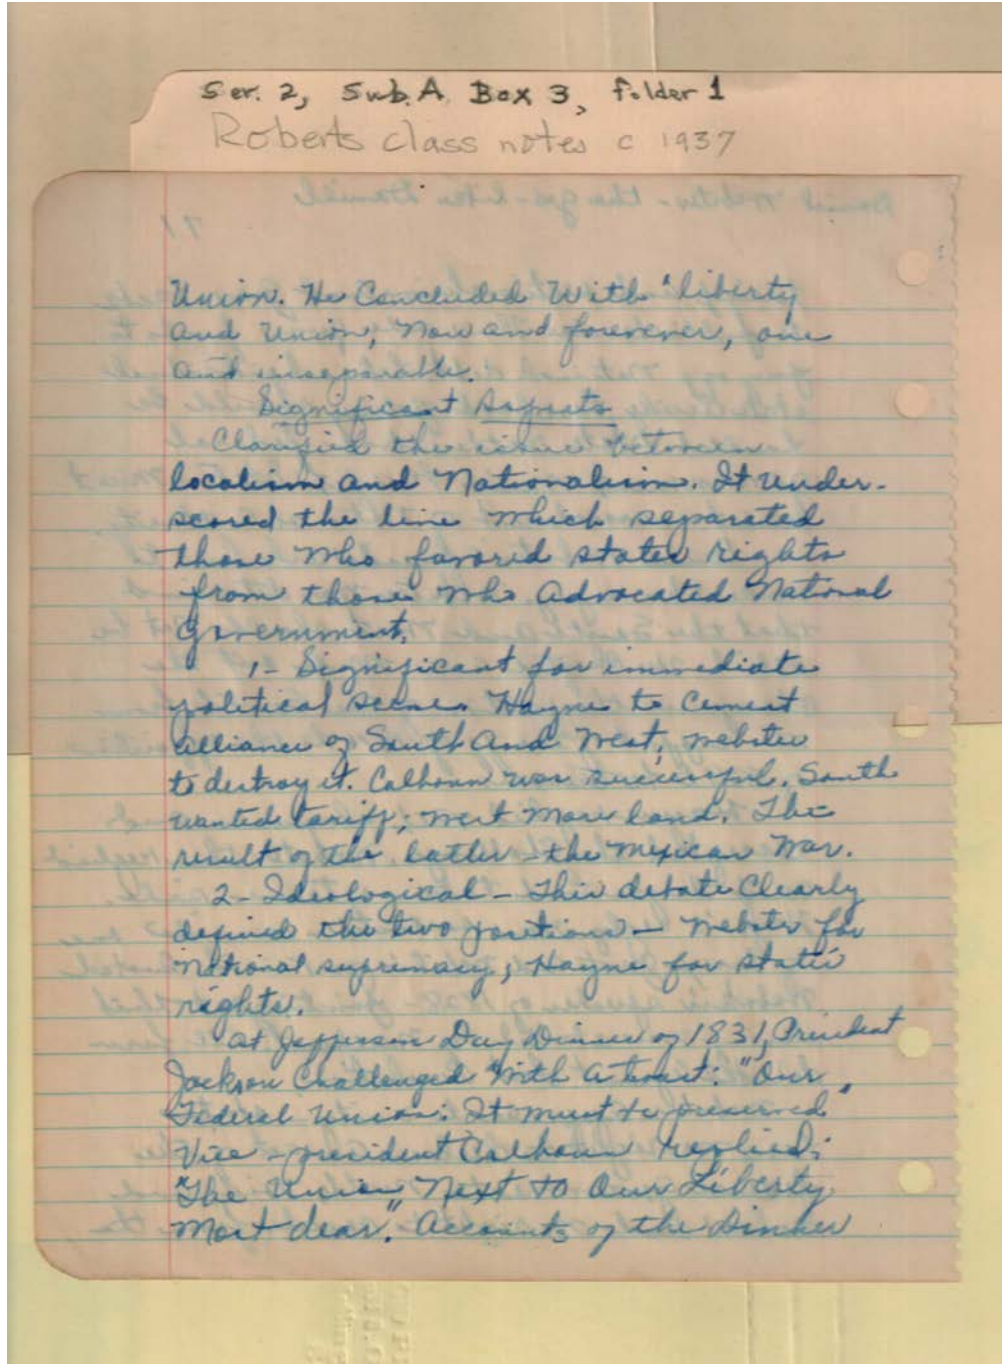 Ser. 2, Sub. A. Box 3, folder 1
Roberts class notes c 1937
Union. He Concluded With "liberty
and Union, Now and forever, one
and inseparable.
Significant Aspects
Clarified the issue between
localism and Nationalism. It under-
scored the line which separated
those who favored states rights
from those who Advocated National
Government.
1- Significant for immediate
political scene. Hayne to Cement
alliance of South And West, Webster
to destroy it. Calhoun was successful. South
wanted tariff; West More land. The
result of the latter - the Mexican War.
2- Ideological - This debate Clearly
defined the two positions - Webster for
National supremacy, Hayne for states
rights.
At Jefferson Day Dinner of 1831, President
Jackson Challenged With A toast: "Our
Federal Union: It must be preserved"
Vice-president Calhoun replied:
"The Union Next to Our Liberty
Most dear." Accounts of the Dinner